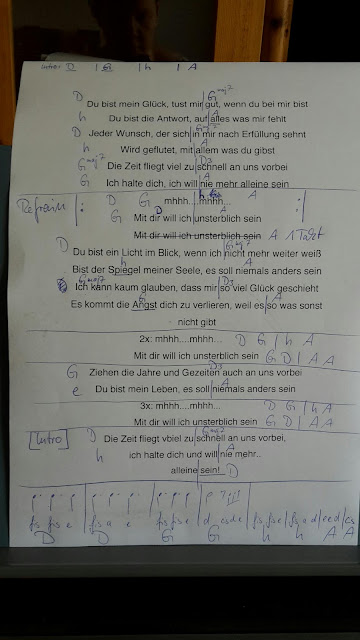 Intro: D | G | h | A
D Gmaj7
Du bist mein Glück, tust mir gut, wenn du bei mir bist
h A
Du bist die Antwort, auf alles was mir fehlt
D Gmaj7
Jeder Wunsch, der sich in mir nach Erfüllung sehnt
h A
Wird geflutet, mit allem was du gibst
Gmaj7 D
Die Zeit fliegt viel zu schnell an uns vorbei
G A
Ich halte dich, ich will nie mehr alleine sein
Refrain |: D G mhhh....mhhh... h A :|
G D A
Mit dir will ich unsterblich sein
Mit dir will ich unsterblich sein A 1 Takt
D Gmaj7
Du bist ein Licht im Blick, wenn ich nicht mehr weiter weiß
h A
Bist der Spiegel meiner Seele, es soll niemals anders sein
Gmaj7 D
Ich kann kaum glauben, dass mir so viel Glück geschieht
G A
Es kommt die Angst dich zu verlieren, weil es so was sonst
nicht gibt
2x: mhhh....mhhh... D G | h A
Mit dir will ich unsterblich sein G D | A A
G D
Ziehen die Jahre und Gezeiten auch an uns vorbei
e A
Du bist mein Leben, es soll niemals anders sein
3x: mhhh....mhhh... D G | h A
Mit dir will ich unsterblich sein G D | A A
[Intro] D Gmaj7
Die Zeit fliegt vbiel zu schnell an uns vorbei,
h A
ich halte dich und will nie mehr..
alleine sein! D
fis fis e | fis a e | fis fis e | d cis d e | fis fis e | fis a d | e e d | cis
D D G G h h A A